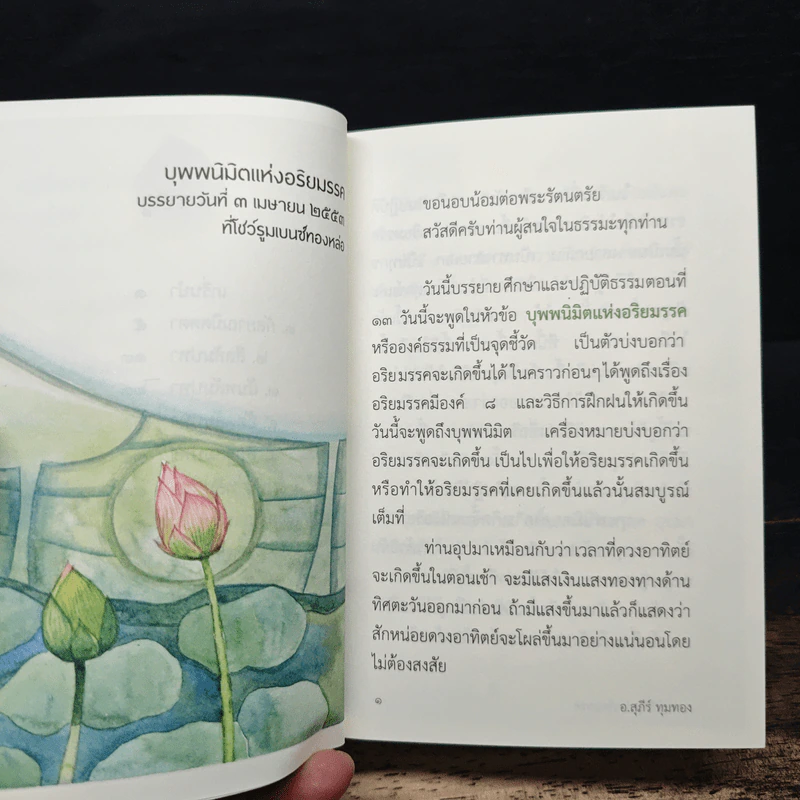 บุพพนิมิตแห่งอริยมรรค
บรรยายวันที่ ๓ เมษายน ๒๕๕๓
ที่โชว์รูมเบนซ์ทองหล่อ
ขอนอบน้อมต่อพระรัตนตรัย
สวัสดีครับท่านผู้สนใจในธรรมะทุกท่าน
วันนี้บรรยาย ศึกษาและปฏิบัติธรรมตอนที่
๑๓ วันนี้จะพูดในหัวข้อ บุพพนิมิตแห่งอริยมรรค
หรือองค์ธรรมที่เป็นจุดชี้วัด เป็นตัวบ่งบอกว่า
อริยมรรคจะเกิดขึ้นได้ ในคราวก่อนๆ ได้พูดถึงเรื่อง
อริยมรรคมีองค์ ๘ และวิธีการฝึกฝนให้เกิดขึ้น
วันนี้จะพูดถึงบุพพนิมิต เครื่องหมายบ่งบอกว่า
อริยมรรคจะเกิดขึ้น เป็นไปเพื่อให้อริยมรรคเกิดขึ้น
หรือทำให้อริยมรรคที่เคยเกิดขึ้นแล้วนั้นสมบูรณ์
เต็มที่
ท่านอุปมาเหมือนกับว่า เวลาที่ดวงอาทิตย์
จะเกิดขึ้นในตอนเช้า จะมีแสงเงินแสงทองทางด้าน
ทิศตะวันออกมาก่อน ถ้ามีแสงขึ้นมาแล้วก็แสดงว่า
สักหน่อยดวงอาทิตย์จะโผล่ขึ้นมาอย่างแน่นอนโดย
ไม่ต้องสงสัย
๑
อ.สุภีร์ ทุมทอง